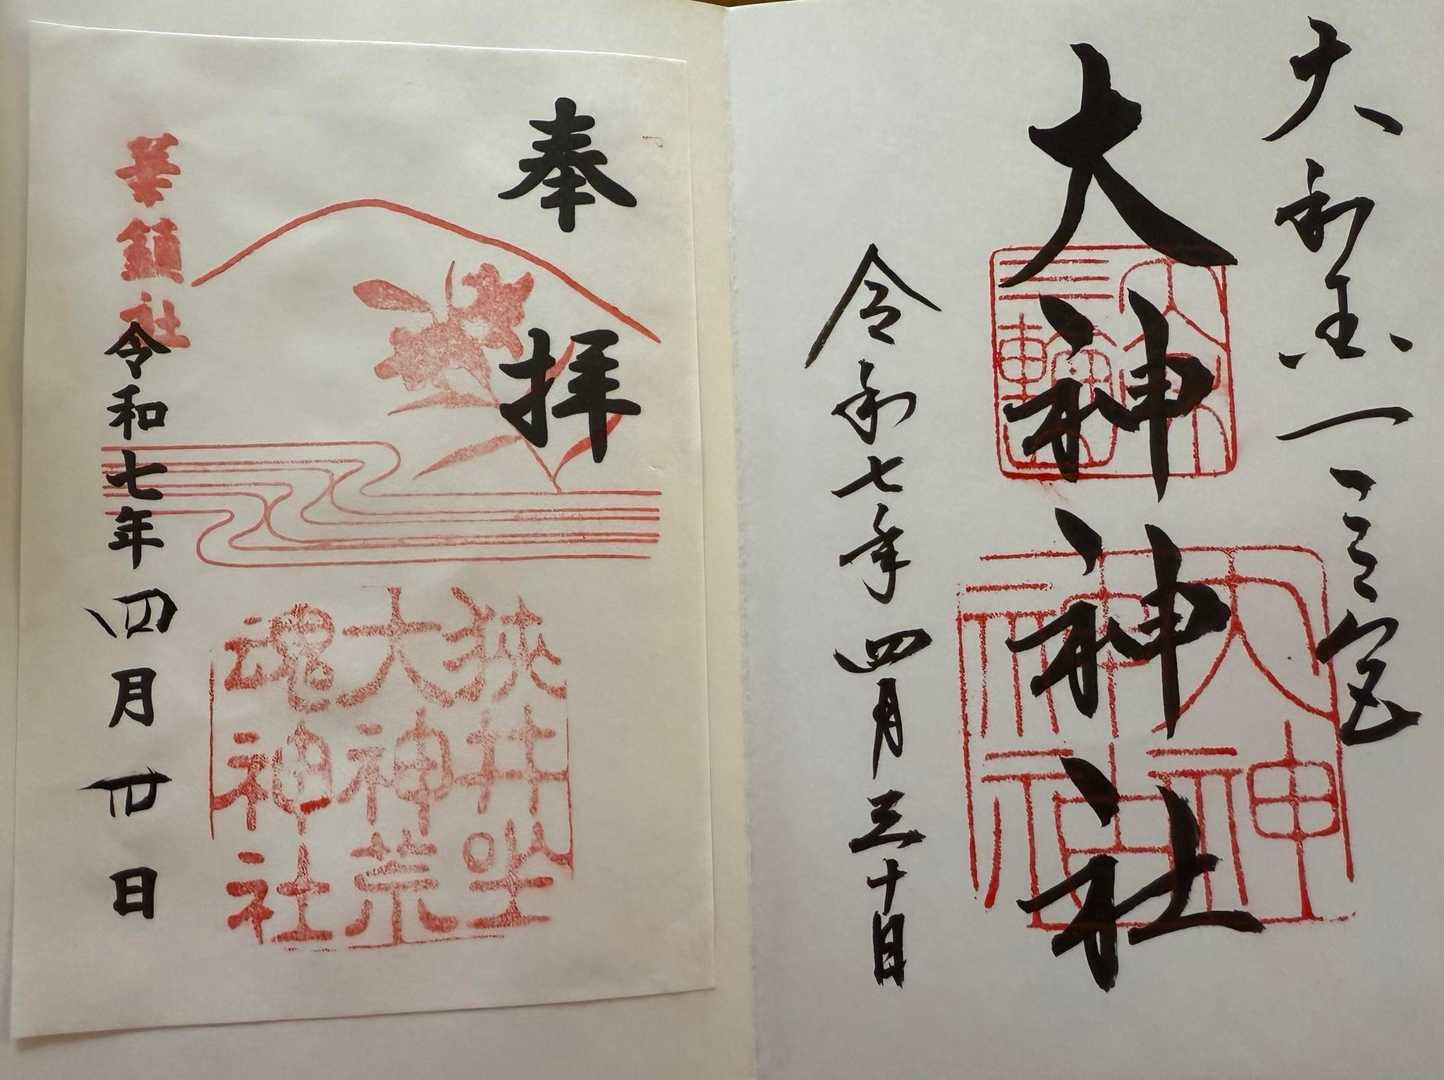 大和国一之宮
大神神社
三輪
大神神社
令和七年四月三十日
奉拝
狹井坐
大神荒
魂神社
華鎮社
令和七年四月丗日